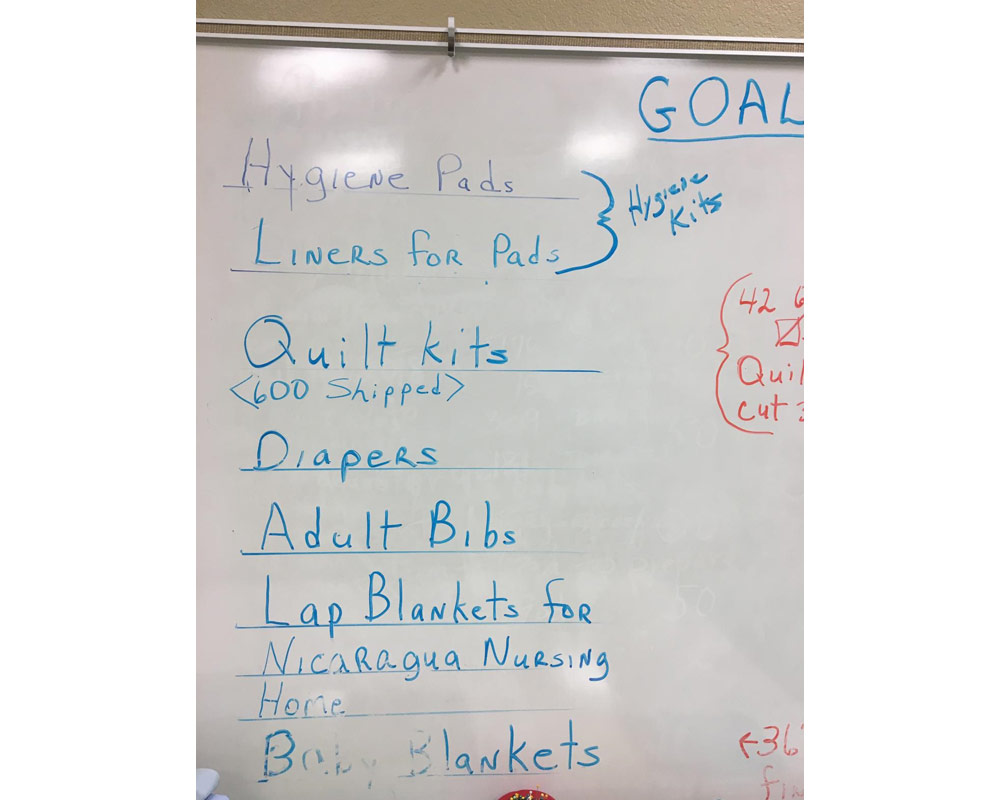 GOAL
Hygiene Pads
Liners for Pads
Hygiene
Kits
Quilt kits
<600 Shipped>
Diapers
Adult Bibs
Lap Blankets for
Nicaragua Nursing
Home
Baby Blankets
42 6
Quil
cut
←36
fin